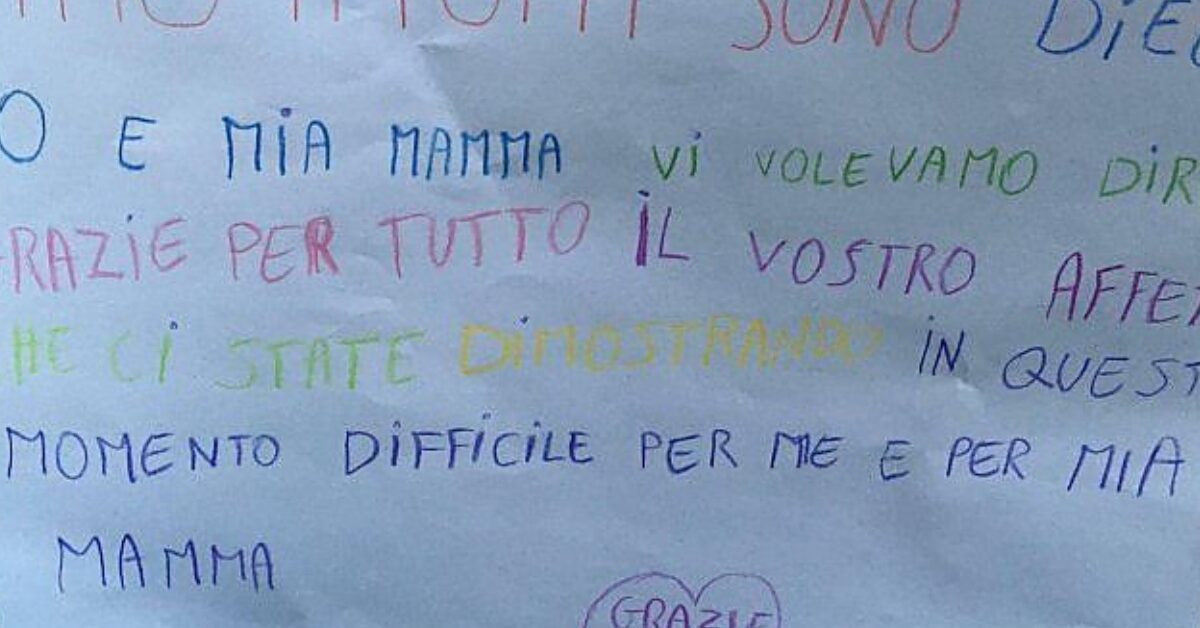 A TUTTI SONO DiE
O E MiA MAMMA Vi VOLEVAMO DIR
RAZiE PER TUTTO iL VOSTRO AFFE
HE Ci STATE DiMOSTRANDO iN QUEST
MOMENTO DiFFiCiLE PER ME E PER MIA
MAMMA
GRAZIE